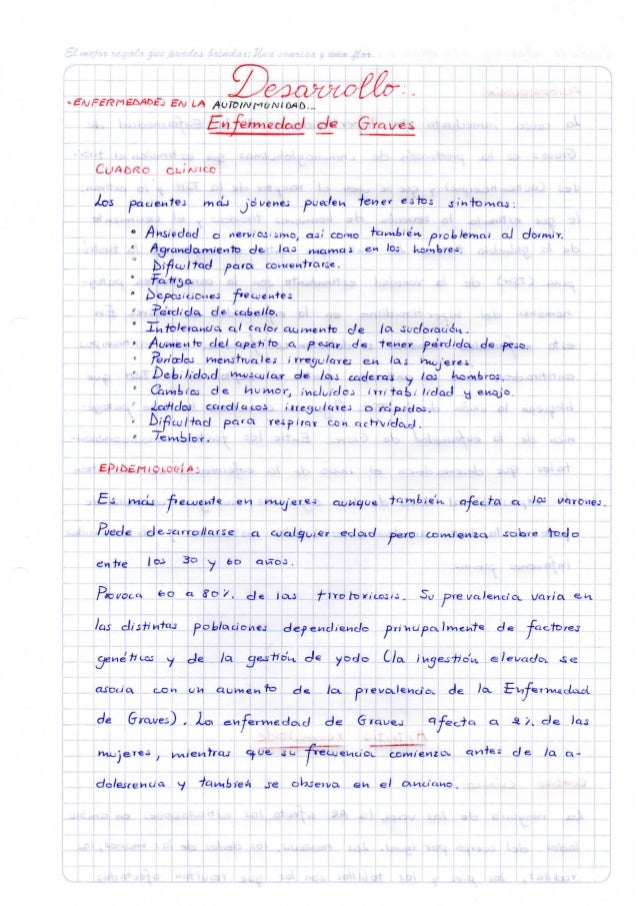 El mejor regalo que puedes brindar: Una sonrisa y una flor.
Desarrollo:.
• ENFERMEDADES EN LA AUTOINMUNIDAD...
Enfermedad de Graves
CUADRO CLÍNICO:
Los pacientes más jóvenes pueden tener estos síntomas:
• Ansiedad o nerviosismo, así como también problemas al dormir.
• Agrandamiento de las mamas en los hombres.
• Dificultad para concentrarse.
• Fatiga
• Deposiciones frecuentes
• Pérdida de cabello.
• Intolerancia al calor aumento de la sudoración.
• Aumento del apetito a pesar de tener pérdida de peso.
• Periodos menstruales irregulares en las mujeres.
• Debilidad muscular de las caderas y los hombros.
• Cambios de humor, incluidos irritabilidad y enojo.
• Latidos cardíacos irregulares o rápidos.
• Dificultad para respirar con actividad.
• Temblor.
EPIDEMIOLOGÍA:
Es más frecuente en mujeres aunque también afecta a los varones.
Puede desarrollarse a cualquier edad pero comienza sobre todo
entre los 30 y 60 años.
Provoca 60 a 80%. de las tirotoxicosis. Su prevalencia varía en
las distintas poblaciones dependiendo principalmente de factores
genéticos y de la gestión de yodo (la ingestión elevada se
asocia con un aumento de la prevalencia de la Enfermedad
de Graves). La enfermedad de Graves afecta a 2%. de las
mujeres, mientras que su frecuencia comienza antes de la a-
dolescencia y también se observa en el anciano.